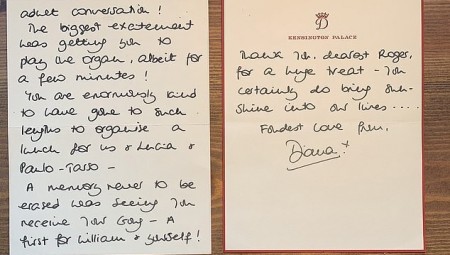 adult conversation!
The biggest excitement
was getting you to
play the organ, albeit for
a few minutes!
You are enormously kind
to have gone to such
lengths to organise a
lunch for us & Lucia &
Paulo-Tasso -
A memory never to be
erased was seeing you
receive your Gong - A
first for William & yourself!
D
KENSINGTON PALACE
Thank you, dearest Roger,
for a huge treat - You
certainly do bring sun-
shine into our lives ....
Fondest love from,
Diana x